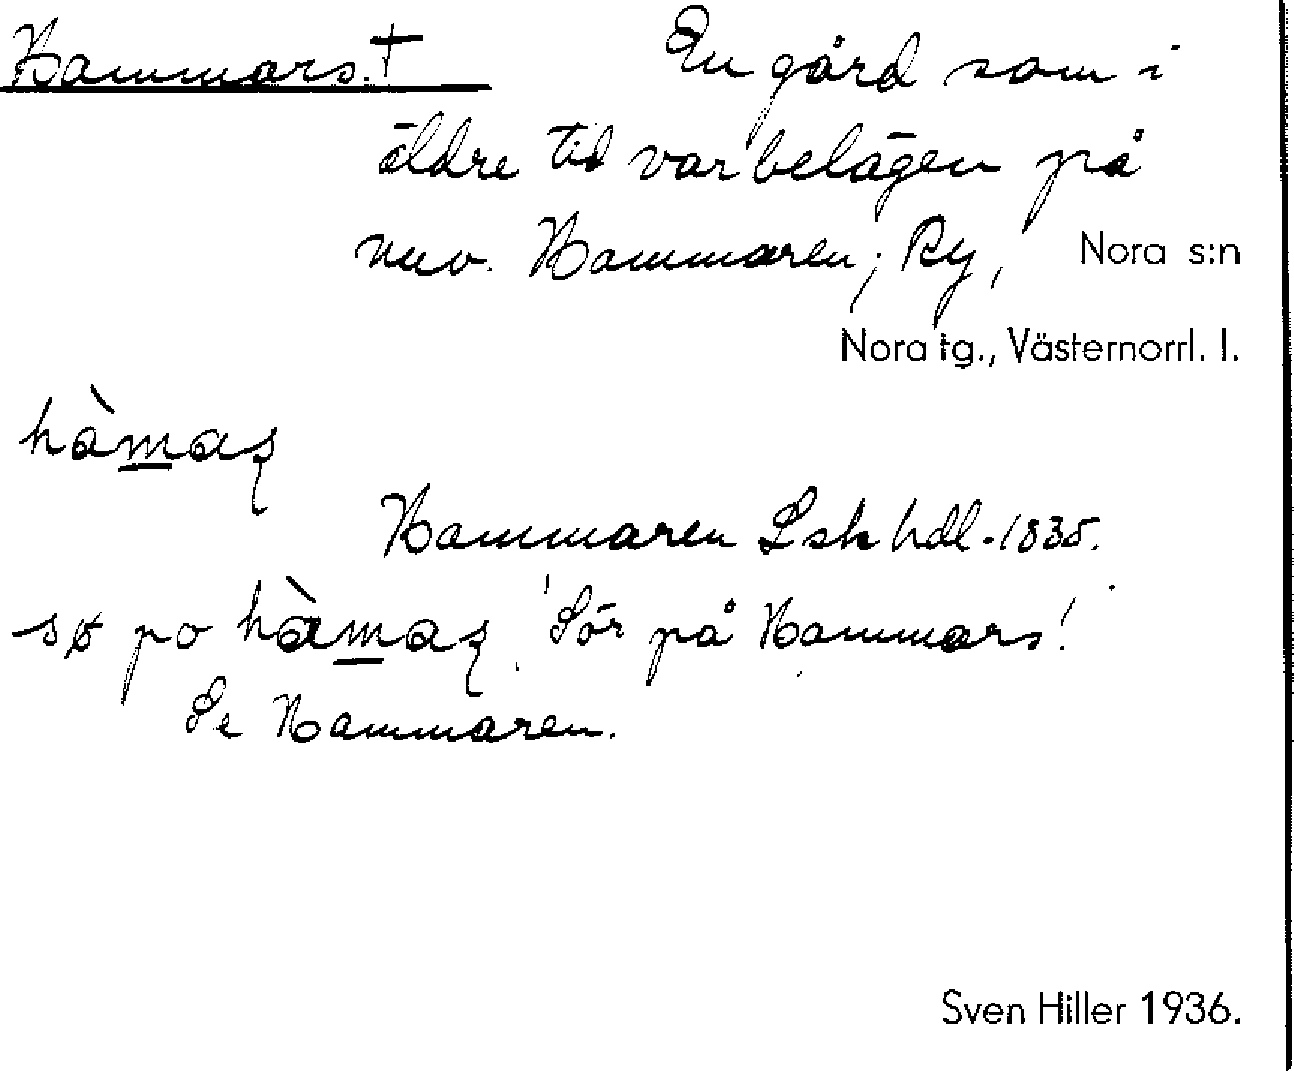 Hammars. † En gård som i
äldre tid var belägen på
nuv. Hammaren; Ry, Nora s:n
Nora tg., Västernorrl. l.
hàmaʂ
Hammaren Lskhdl. 1835.
sø po hàmaʂ 'Sör på Hammars!'
Se Hammaren.
Sven Hiller 1936.